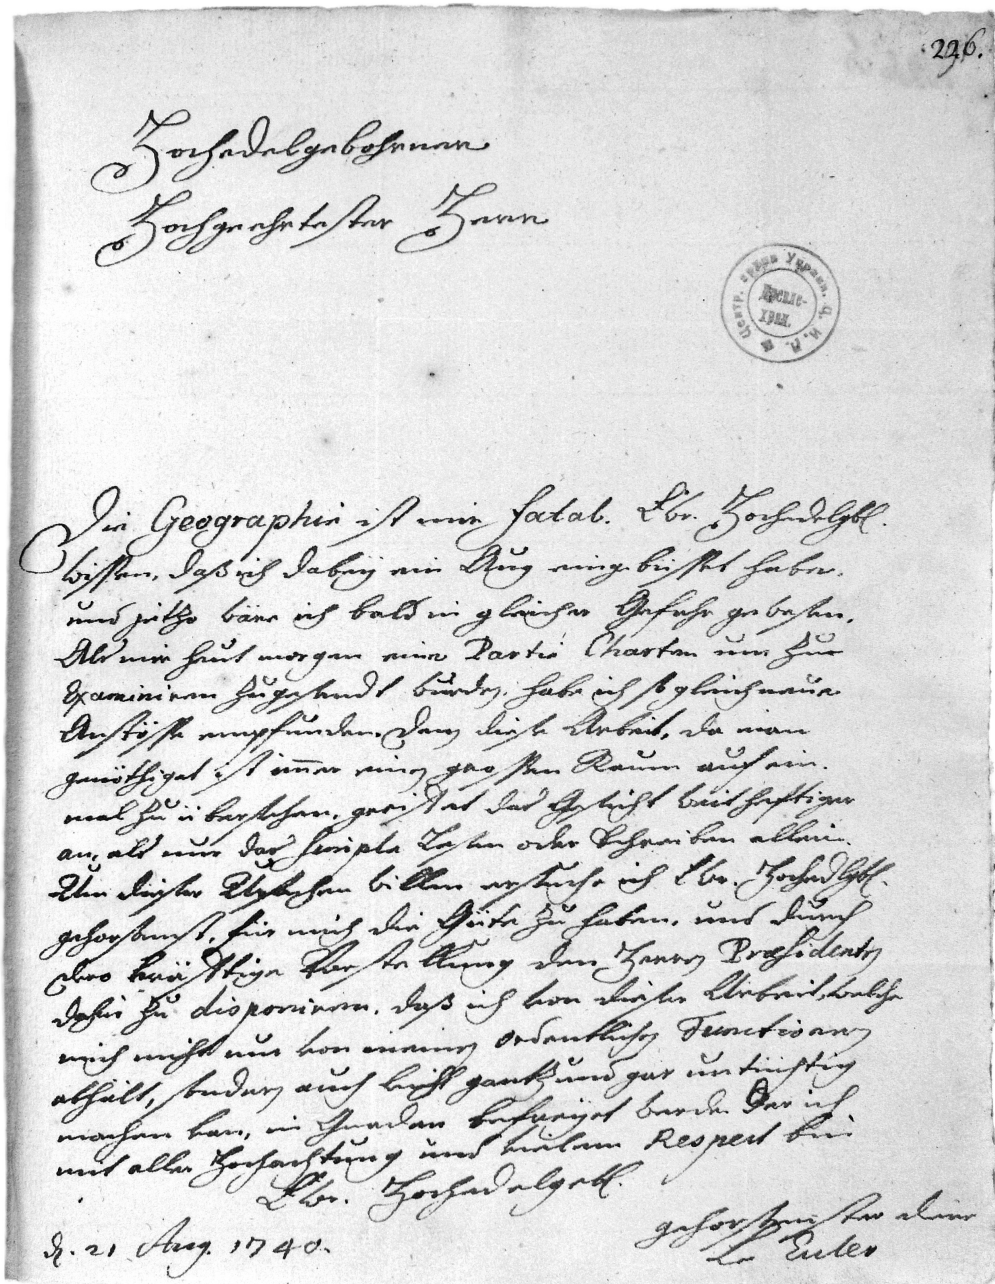 226.
Hochedelgebohrner
Hochgeehrtester Herr
Die Geographie ist mir fatal. Ewr. Hochedelgb.
wissen, daß ich dabey ein Aug eingebüsset habe.
und jetzo wäre ich bald in gleicher Gefahr gewesen.
Als mir heut morgen eine Partie Charten um zu
examiniren zugesandt wurden, habe ich sogleich neue
Anstösse empfunden. Denn diese Arbeit, da man
genöthiget ist immer einen grossen Raum auf ein-
mal zu übersehen, greifet das Gesicht weit heftiger
an, als nur das simple Lesen oder Schreiben allein.
Um dieser Ursachen willen ersuche ich Ewr. Hochedlgb.
gehorsamst, für mich die Güte zu haben, und durch
dero kräfftige Vorstellung den Herrn Præsidenten
dahin zu disponiren, daß ich von dieser Arbeit, welche
mich nicht nur von meinen ordentlichen Functionen
abhält, sondern auch leicht gantz und gar untüchtig
machen kan, in Gnaden befreyet werde. Der ich
mit aller Hochachtung und vielem Respect bin
Ewr. Hochedelgeb.
gehorsamster Diener
d. 21 Aug. 1740.
L. Euler